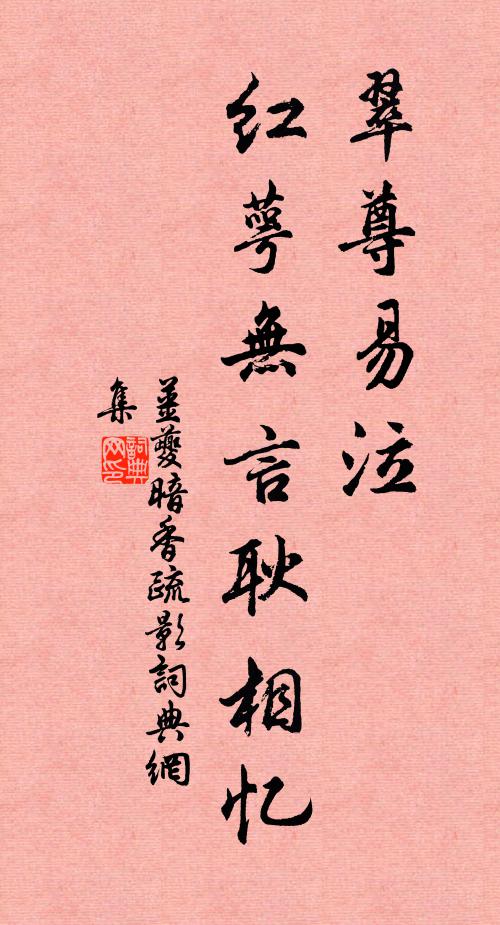 翠尊易泣
红萼無言耿相忆
姜夔暗香疏影詞典網
集
詞典网印